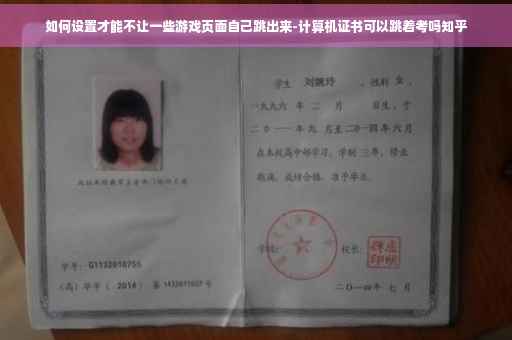 如何设置才能不让一些游戏页面自己跳出来-计算机证书可以跳着考吗知乎
学生 刘婉玲 ，性别 女 ，
一九九六 年 二 月 日生，于
二〇一一年 九 月至二〇一四年 六 月
在本校高中部学习，学制 三年，修业
期满，成绩合格，准予毕业。
学校： 校长：
学号： G1132010755
（高）毕字（ 2014 ）第 1432011027 号
二〇一四年 七 月